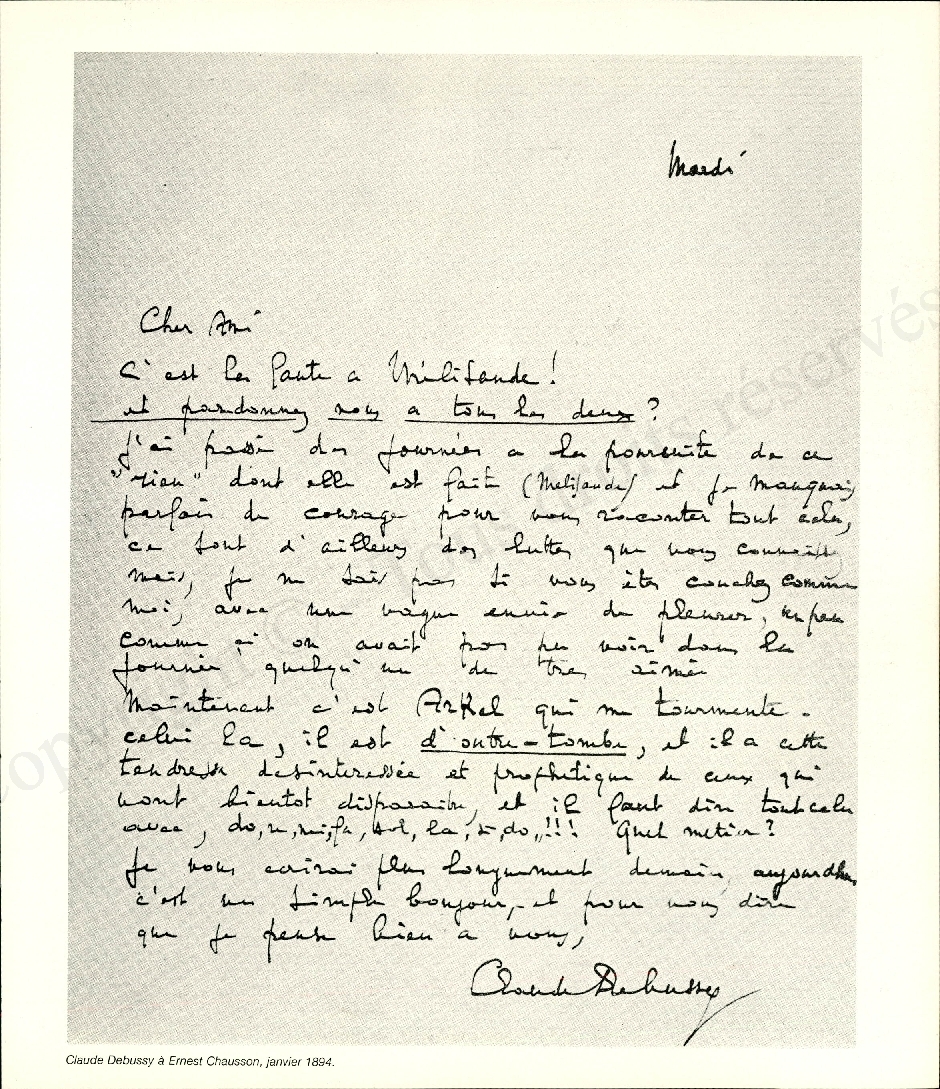 Mardi
Cher Ami
C'est la faute a Mélisande !
et pardonnez nous a tous les deux ?
J'ai passé des journées a la poursuite de ce
"rien" dont elle est faite (Mélisande) et je manquais
parfois de courage pour vous raconter tout cela,
ce sont d'ailleurs des luttes que vous connaissez
mais, je ne sais pas si vous êtes couchez comme
moi, avec une vague envie de pleurer, un peu
comme si on avait pas pu voir dans la
journée quelqu'un de très aimé
Maintenant c'est Arkel qui me tourmente.
celui la, il est d'outre-tombe, et il a cette
tendresse désinteressée et prophétique de ceux qui
vont bientot disparaitre, et il faut dire tout cela
avec, do, re, mi, fa, sol, la, si, do,,!!! Quel metier ?
Je vous ecrirai plus longuement demain, aujourdhui
c'est un simple bonjour, et pour vous dire
que je pense bien a vous,
Claude Debussy
Claude Debussy à Ernest Chausson, janvier 1894.
copyright © Tous droits réservés